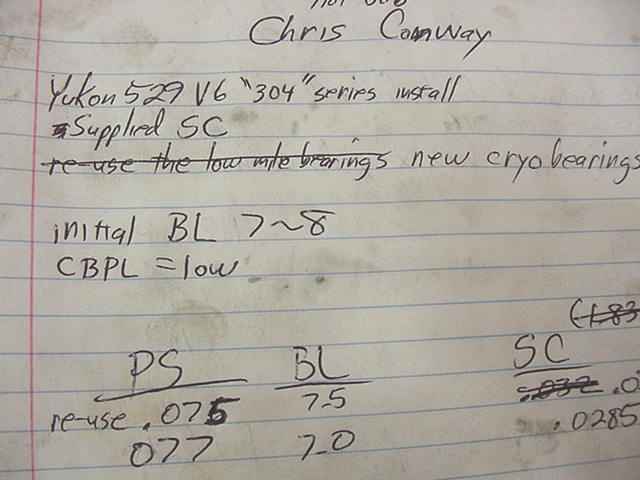 Chris Conway
Yukon 529 V6 "304" series install
Supplied SC
re-use the low mile bearings new cryo bearings
initial BL 7~8
CBPL = low
(1.83
PS BL SC
re-use .075 7.5 .032 .0
077 7.0 .0285